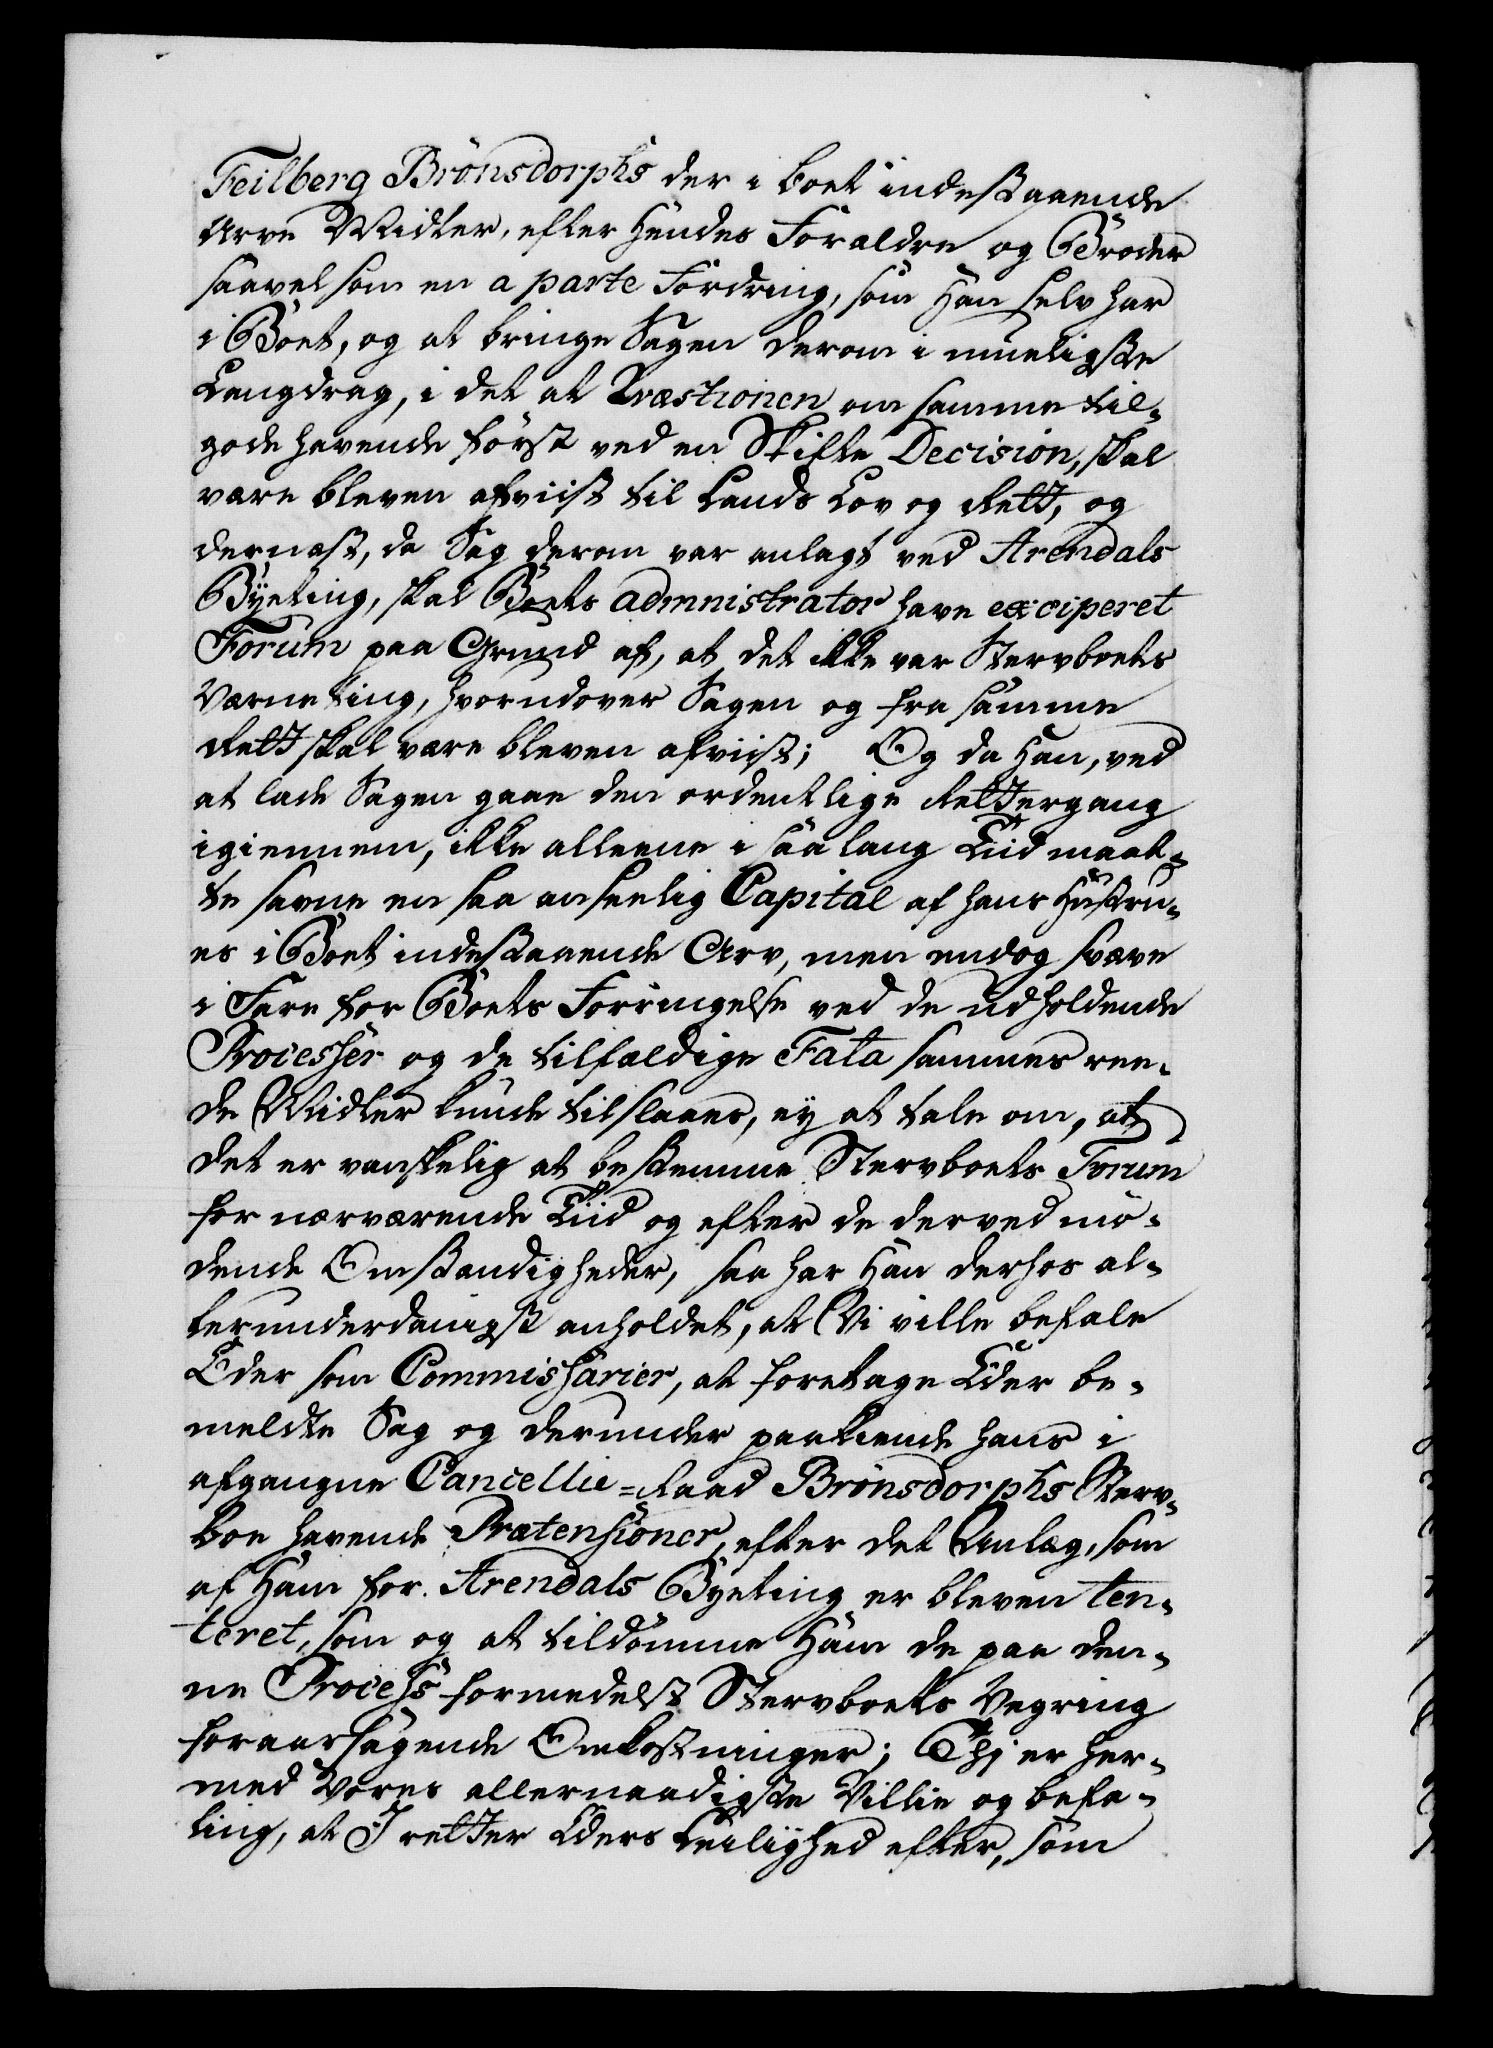 Feilberg Brönsdorphs der i boet indestaaende
Arve Midler, efter Hendes Forældre og Broder
saavel som en a parte Fordring, som Han selv har
i Boet, og at bringe Sagen derom i mueligste
Langdrag, i det at Qvæstionen om samme til-
gode havende først ved en Skifte Decision, skal
være bleven afviist til Lands Lov og Rett, og
dernæst, da Sag derom var anlagt ved Arendals
Byeting, skal Boets admnistrator have exciperet
Forum paa Grund af, at det ikke var Stervboets
Værneting, hvorudover Sagen og fra samme
Rett skal være bleven afviist; Og da Han, ved
at lade Sagen gaae den ordentlige Rettergang
igiennem, ikke alleene i saa lang Tiid maat-
te savne en saa anseelig Capital af hans Hustru-
es i Boet indestaaende Arv, men endog svæve
i Fare for Boets Forringelse ved de udholdende
Processer og de tilfældige Fata sammes ree-
de Midler kunde tilslaaes, ey at tale om, at
det er vanskelig at bestemme Stervboets Forum
for nærværende Tiid og efter de derved mö-
dende Omstændigheder, saa har Han derhos al-
lerunderdanigst anholdet, at Vi ville befale
Eder som Commissarier, at foretage Eder be-
meldte Sag og derunder paakiende hans i
afgangne Cancellie-Raad Brönsdorphs Sterv-
boe havende Prætensioner, efter det Anlæg, som
af Ham for Arendals Byeting er bleven ten-
teret, som og at tildömme Ham de paa den-
ne Process formedelst Stervboets Vegring
foraarsagende Omkostninger; Thj er her-
med Vores allernaadigste Villie og befa-
ling, at I retter Eders Leilighed efter, som